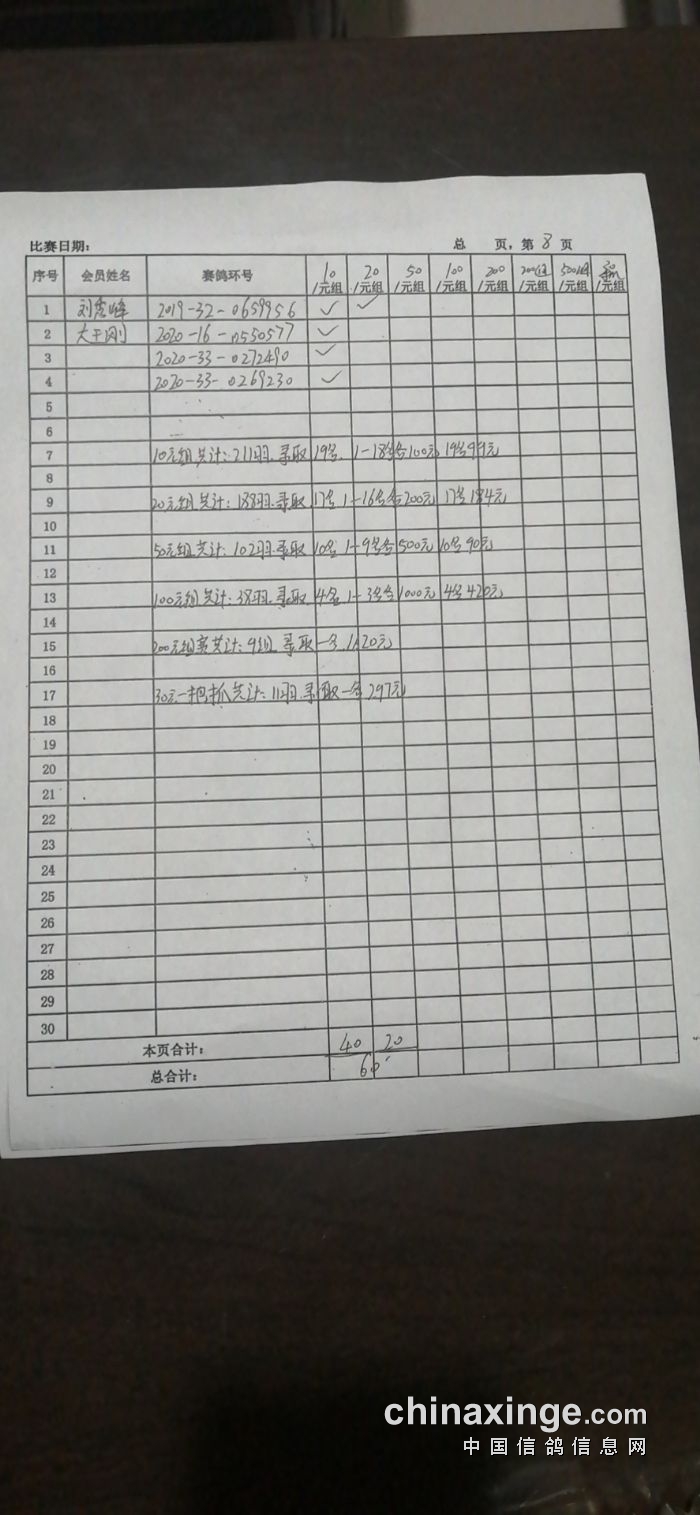 比赛日期: 总 页,第 8 页
序号 会员姓名 赛鸽环号 10/元组 20/元组 50/元组 100/元组 200/元组 200组/元组 500组/元组 /元组
1 刘 峰 2019-32-0659956 ✓ ✓
2 大王刚 2020-16-0550577 ✓
3 2020-33-0272490 ✓
4 2020-33-0269230 ✓
5
6
7 10元组共计:211羽.录取19名.1-18名各100元 19名99元
8
9 20元组共计:188羽.录取17名1-16名各200元 17名184元
10
11 50元组共计:102羽.录取10名1-9名各500元10名90元
12
13 100元组共计:38羽.录取4名1-3名各1000元 4名420元
14
15 200元组 共计:9组.录取一名.1620元
16
17 30元一把抓共计:11羽.录取一名297元
18
19
20
21
22
23
24
25
26
27
28
29
30
本页合计: 40 20
总合计: 60
chinaxinge.com
中国信鸽信息网